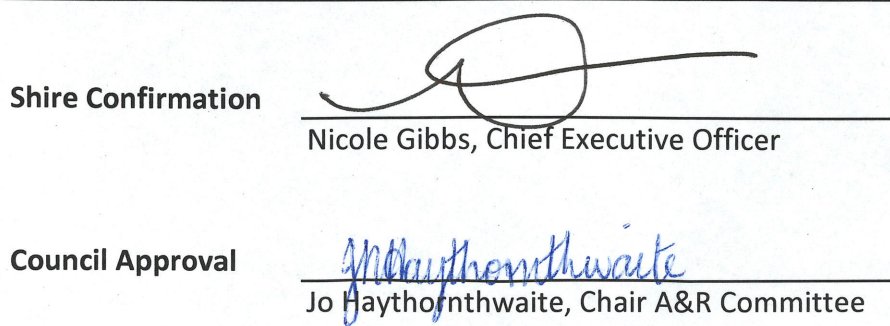 Shire Confirmation
Nicole Gibbs, Chief Executive Officer
Council Approval
Haythornthwaite
Jo Haythornthwaite, Chair A&R Committee